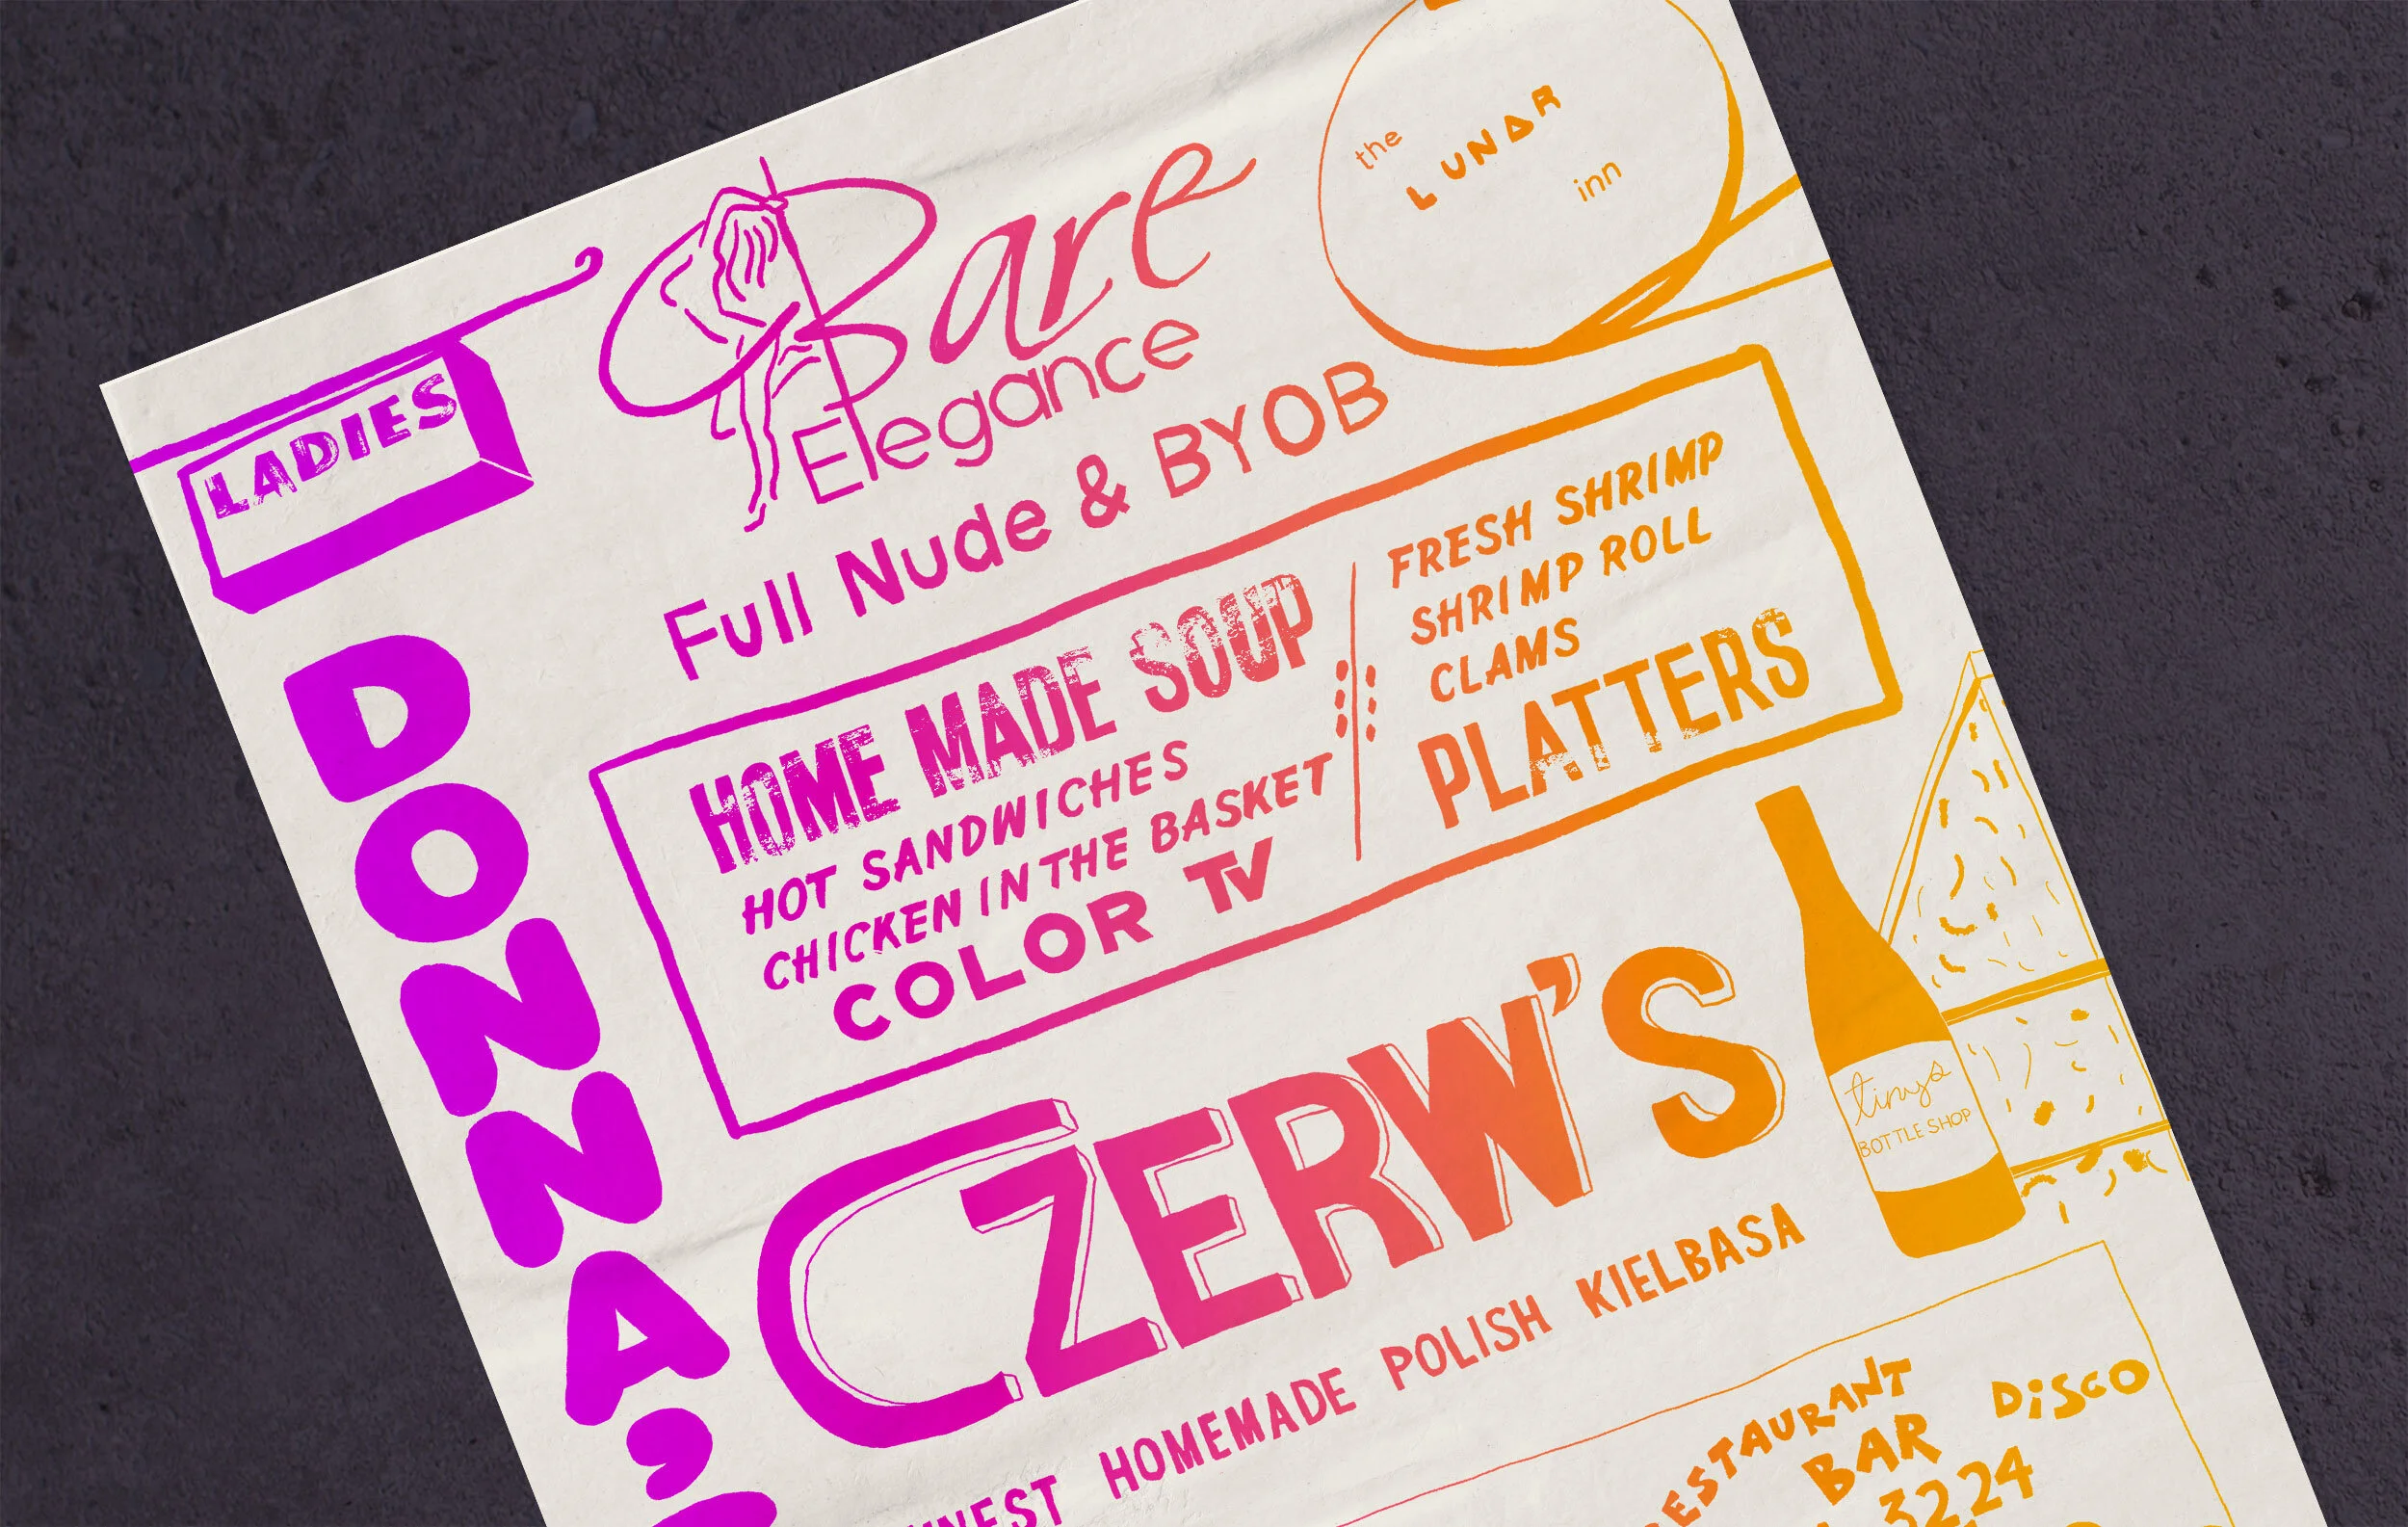 the
LUNAR
inn
Bare
Elegance
Full Nude & BYOB
LADIES
DONNA'
HOME MADE SOUP
HOT SANDWICHES
CHICKEN IN THE BASKET
COLOR TV
FRESH SHRIMP
SHRIMP ROLL
CLAMS
PLATTERS
CZERW'S
HOMEMADE POLISH KIELBASA
tinys
BOTTLE SHOP
RESTAURANT
BAR DiSCO
3224